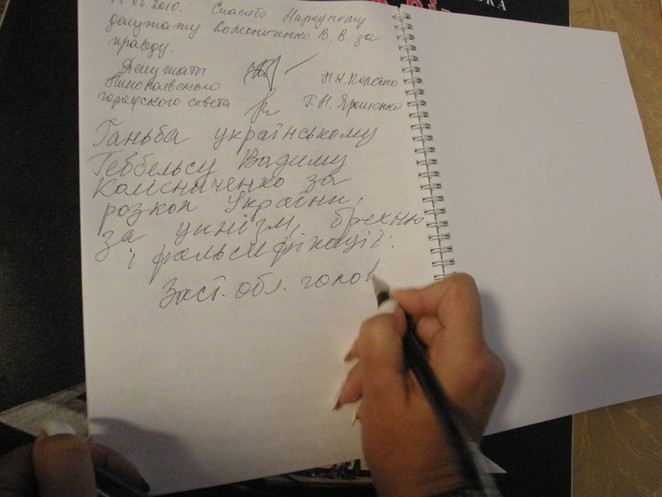 .06.2010. Спасибо Народному
депутату Колесниченко В. В. за
правду.
Депутаты
Николаевского
городского совета
Ганьба українському
Геббельсу Вадиму
Колєсніченко за
розкол України,
за цинізм, брехню
і фальсифікації.
Заст. обл. голов